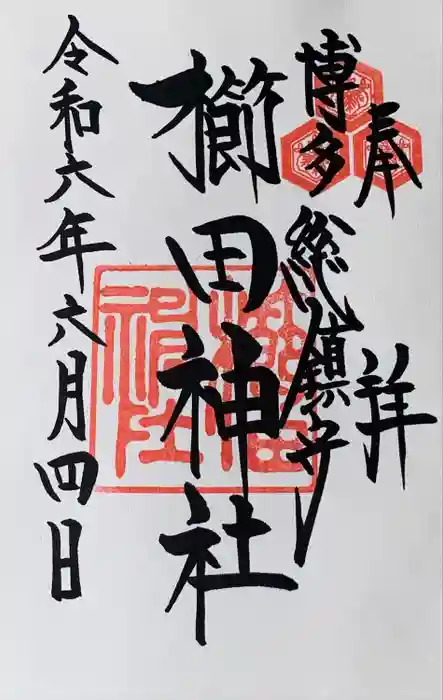 奉拝
博多総鎮守
櫛田神社
令和六年六月四日